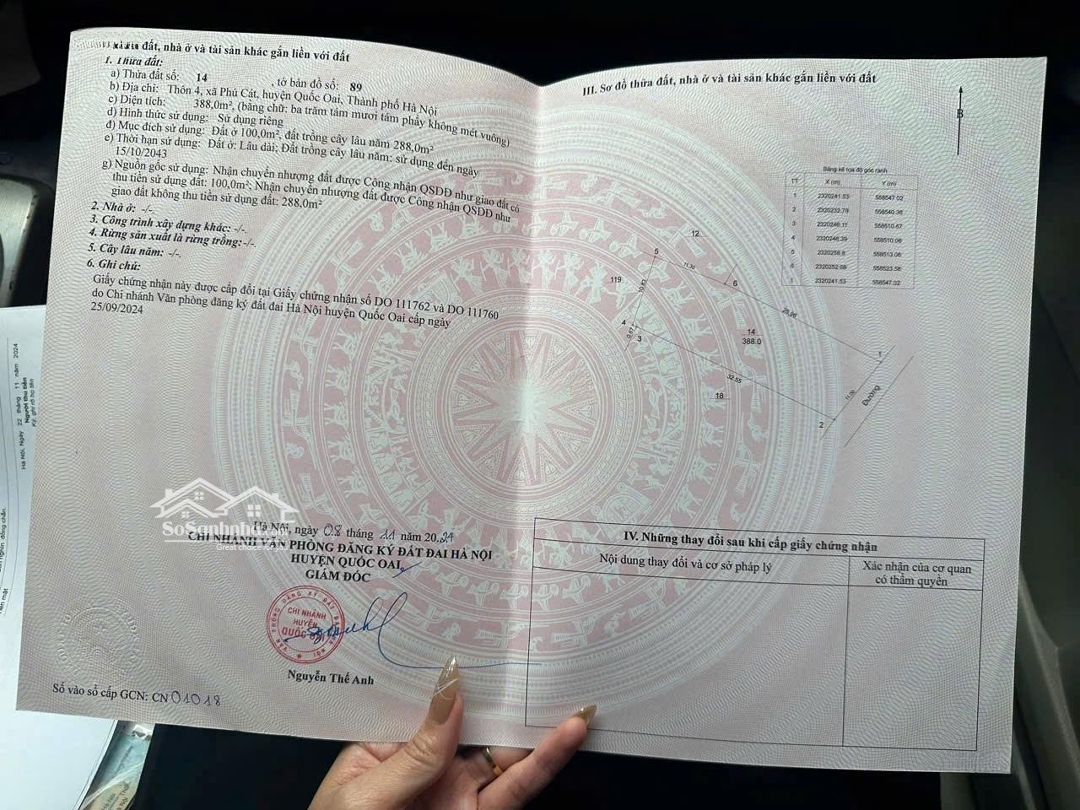 đất, nhà ở và tài sản khác gắn liền với đất
1. Thửa đất:
a) Thửa đất số: 14 , tờ bản đồ số: 89
b) Địa chỉ: Thôn 4, xã Phú Cát, huyện Quốc Oai, Thành phố Hà Nội
c) Diện tích: 388,0m², (bằng chữ: ba trăm tám mươi tám phẩy không mét vuông)
d) Hình thức sử dụng: Sử dụng riêng
đ) Mục đích sử dụng: Đất ở 100,0m², đất trồng cây lâu năm 288,0m²
e) Thời hạn sử dụng: Đất ở: Lâu dài; Đất trồng cây lâu năm: sử dụng đến ngày
15/10/2043
g) Nguồn gốc sử dụng: Nhận chuyển nhượng đất được Công nhận QSDĐ như giao đất có
thu tiền sử dụng đất: 100,0m²; Nhận chuyển nhượng đất được Công nhận QSDĐ như
giao đất không thu tiền sử dụng đất: 288,0m²
2. Nhà ở: -/-
3. Công trình xây dựng khác: -/-
4. Rừng sản xuất là rừng trồng: -/-
5. Cây lâu năm: -/-
6. Ghi chú:
Giấy chứng nhận này được cấp đổi tại Giấy chứng nhận số DO 111762 và DO 111760
do Chi nhánh Văn phòng đăng ký đất đai Hà Nội huyện Quốc Oai cấp ngày
25/09/2024
Hà Nội, ngày 08 tháng 11 năm 2024
CHI NHÁNH VĂN PHÒNG ĐĂNG KÝ ĐẤT ĐAI HÀ NỘI
HUYỆN QUỐC OAI
GIÁM ĐỐC
CHI NHÁNH
HUYỆN
QUỐC OAI
Nguyễn Thế Anh
Số vào sổ cấp GCN: CN 01018
III. Sơ đồ thửa đất, nhà ở và tài sản khác gắn liền với đất
B
Bảng kê tọa độ góc ranh
TT X (m) Y (m)
1 2320241.53 558547.02
2 2320232.78 558540.36
3 2320246.11 558510.67
4 2320246.39 558510.06
5 2320256.8 558513.06
6 2320252.88 558523.56
1 2320241.53 558547.02
12
5
11.20
119
10.83
6
25.66
4
0.67
3
14
388.0
1
32.55
18
11.00
Đường
2
IV. Những thay đổi sau khi cấp giấy chứng nhận
Nội dung thay đổi và cơ sở pháp lý
Xác nhận của cơ quan
có thẩm quyền
Hà Nội, Ngày 22 tháng 11 năm 2024
Người thu tiền
Ký, ghi rõ họ tên